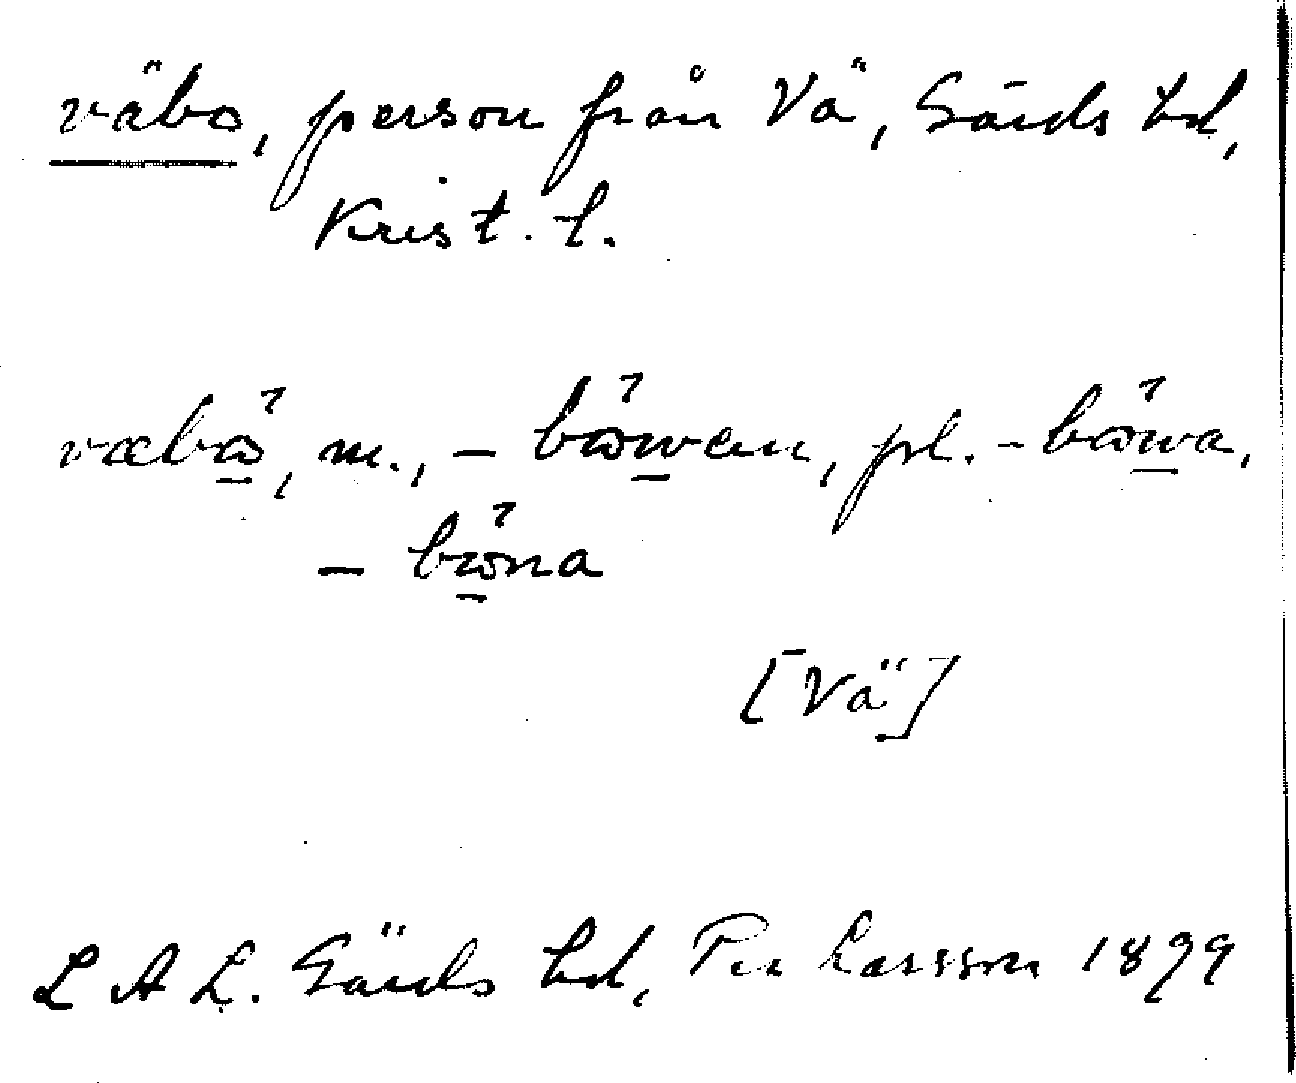 väbo, person från Vä, Gärds hd,
Krist. l.
væbω̱̊, m., – bω̊wen, pl. – bω̊wa,
– bω̱̊na
[Vä]
L A L. Gärds hd, Per Larsson 1899